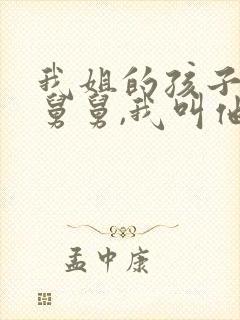 我姐的孩子
舅舅,我叫他
孟中康